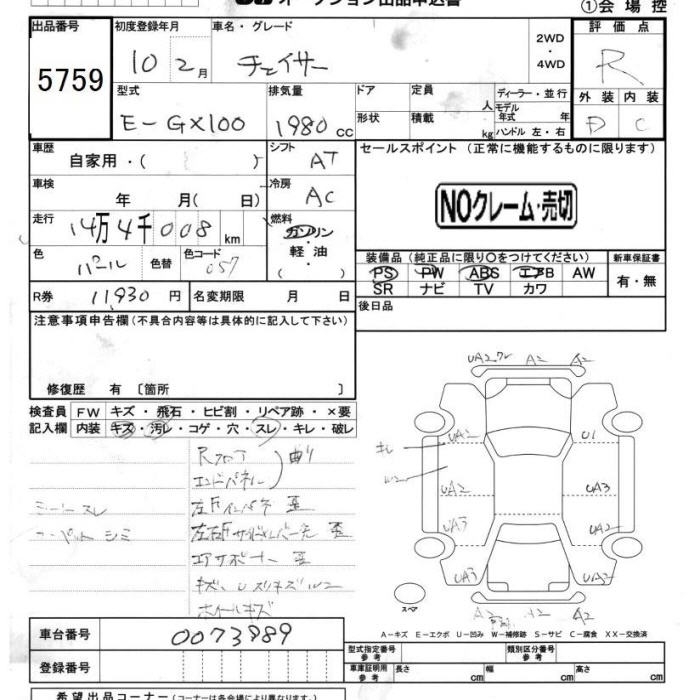 ①会場控
出品番号 初度登録年月 車名・グレード 評価点
5759 10 2月 チェイサー 2WD ・ 4WD R
型式 排気量 ドア 定員 人 ディーラー・並行 外装 内装
E-GX100 1980 cc 形状 積載 kg モデル年式 年 ハンドル 左・右 D C
車歴 自家用・( ) シフト AT セールスポイント(正常に機能するものに限ります)
車検 年 月( 日) 冷房 AC NOクレーム・売切
走行 14万4千008 km 燃料 ガソリン 軽油
色 パール 色替 色コード 057 装備品(純正品に限り○をつけてください) 新車保証書
PS PW ABS エアB AW 有・無
SR ナビ TV カワ
R券 11,930円 名変期限 月 日 後日品
注意事項申告欄(不具合内容等は具体的に記入して下さい)
修復歴 有 〔箇所 〕
検査員 FW キズ・飛石・ヒビ割・リペア跡・×要
記入欄 内装 キズ・汚レ・コゲ・穴・スレ・キレ・破レ
Rフロア 曲り
エンドパネル
シートスレ 左Fインパネ 歪
カーペットシミ 左右Fサイドメンバー先 歪
コアサポート 歪
ホイールキズ
A2 A2
UA1 U1
キレ
UA2 UA3
UA3 UA2
UA3 UA3
A2 A2 A2
スペア
A-キズ E-エクボ U-凹み W-補修跡 S-サビ C-腐食 XX-交換済
車台番号 0073989 型式指定番号 参考 類別区分番号 参考
登録番号 車庫証明用 参考 長さ cm 幅 cm 高さ cm
希望出品コーナー(コーナーは各会場により異なります。)